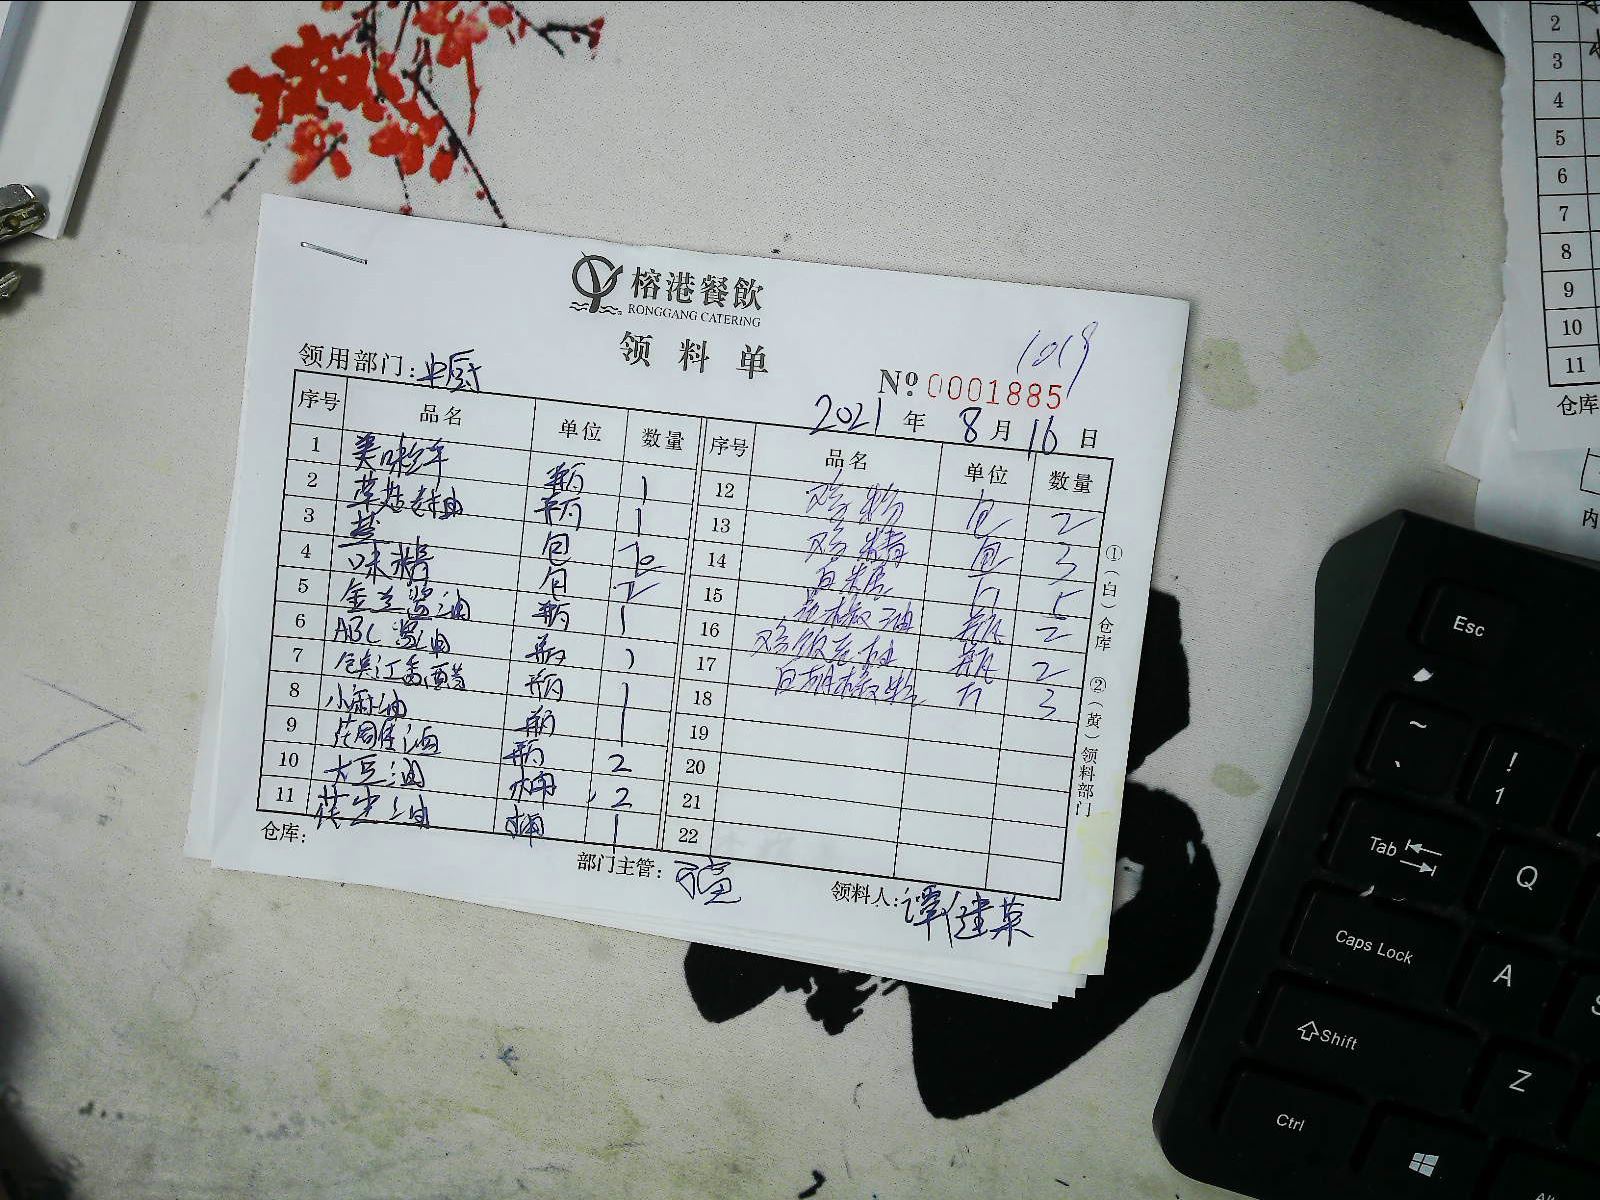 榕港餐飲
RONGGANG CATERING
领料单
1019
领用部门:中厨
№ 0001885
2021年8月16日
序号 品名 单位 数量 序号 品名 单位 数量
1 美味 瓶 1 12 鸡粉 包 2
2 草菇老抽 瓶 1 13 鸡精 包 3
3 包 14 白糖 5
4 味精 包 2 15 花椒油 瓶 2
5 金兰酱油 瓶 1 16 瓶 2
6 ABC酱油 瓶 1 17 白胡椒粉 3
7 镇江香醋 瓶 1 18
8 小麻油 瓶 1 19
9 瓶 2 20
10 大豆油 桶 2 21
11 桶 1 22
仓库:
部门主管:
领料人:谭健
①(白)仓库 ②(黄)领料部门
2
3
4
5
6
7
8
9
10
11
仓库
内
Esc
~
`
!
1
Tab
Q
Caps Lock
A
S
Shift
Z
Ctrl
Alt